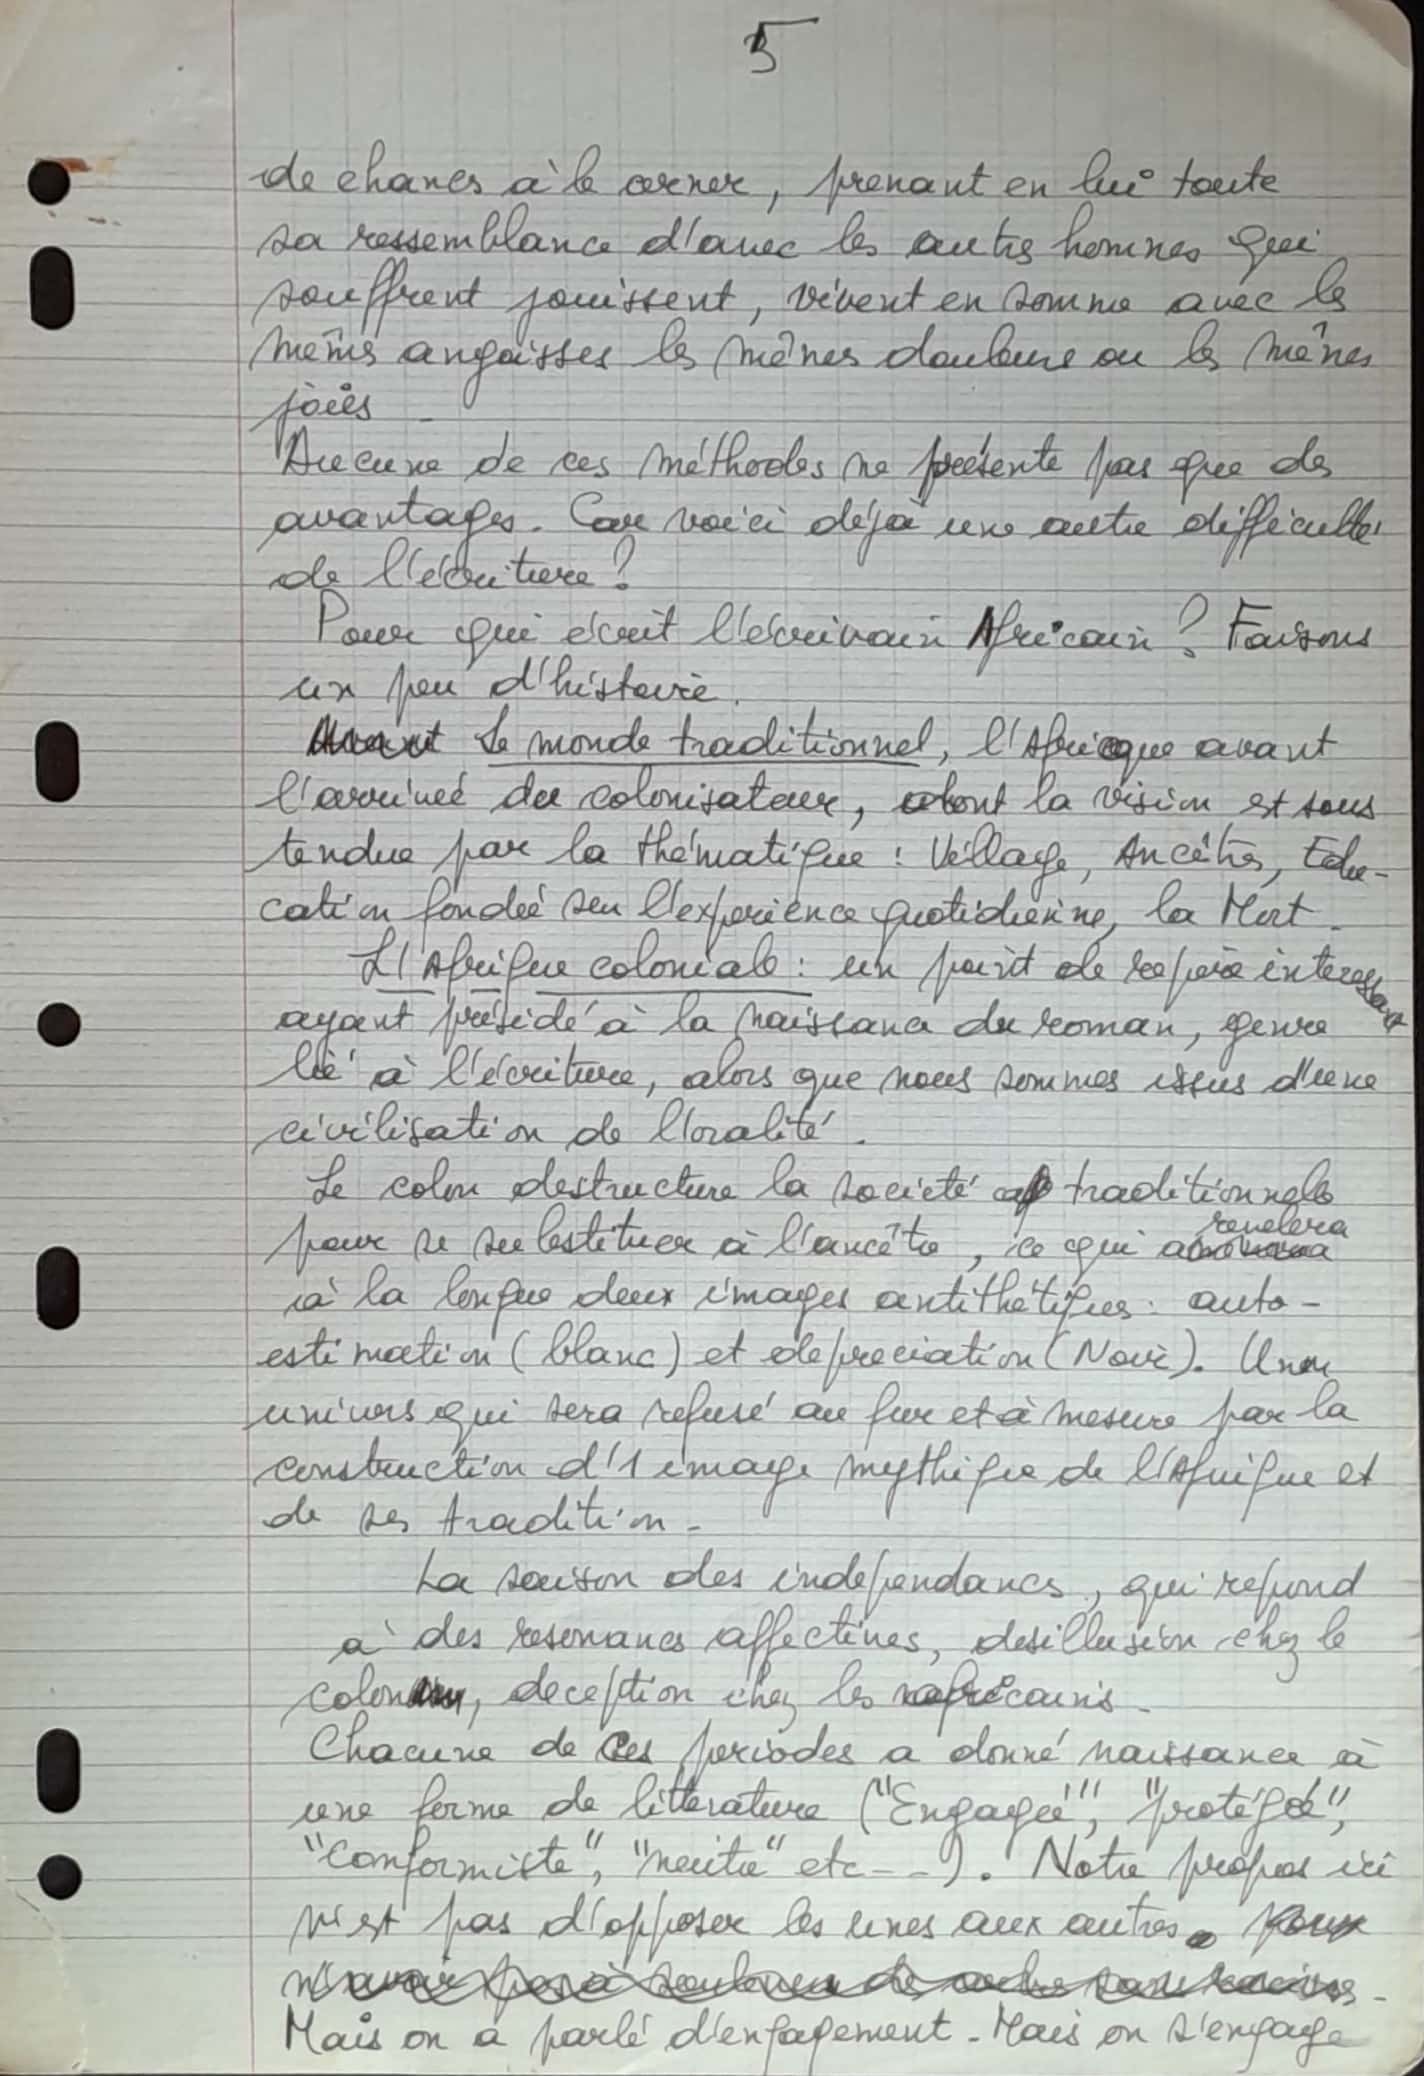 5
de chances à le cerner, prenant en lui toute
sa ressemblance d'avec les autres hommes qui
souffrent jouissent, vivent en somme avec les
mêmes angoisses les mêmes douleurs ou les mêmes
joies
Aucune de ces méthodes ne présente pas que des
avantages. Car voici déjà une autre difficulté
de l'écriture ?
Pour qui écrit l'écrivain Africain ? Faisons
un peu d'histoire.
Le monde traditionnel, l'Afrique avant
l'arrivée du colonisateur, dont la vision est sous
tendue par la thématique : Village, Ancêtres, Edu-
cation fondée sur l'experience quotidienne, la Mort.
L'Afrique coloniale : un point de repère interessant
ayant présidé à la naissance du roman, genre
lié à l'écriture, alors que nous sommes issus d'une
civilisation de l'oralité.
Le colon destructure la société traditionnelle
pour se substituer à l'ancêtre, ce qui revelera
à la longue deux images antithétiques : auto-
estimation (blanc) et depreciation (Noir). Un
univers qui sera refusé au fur et à mesure par la
construction d'1 image mythique de l'Afrique et
de ses tradition -
La saison des independances, qui repond
à des resonances affectives, desillusion chez le
colon, deception chez les africains.
Chacune de ces periodes a donné naissance à
une forme de litterature ("Engagée", "protégée",
"Conformiste", "neutre" etc - - ). Notre propos ici
n'est pas d'opposer les unes aux autres.
Mais on a parlé d'engagement - Mais on s'engage